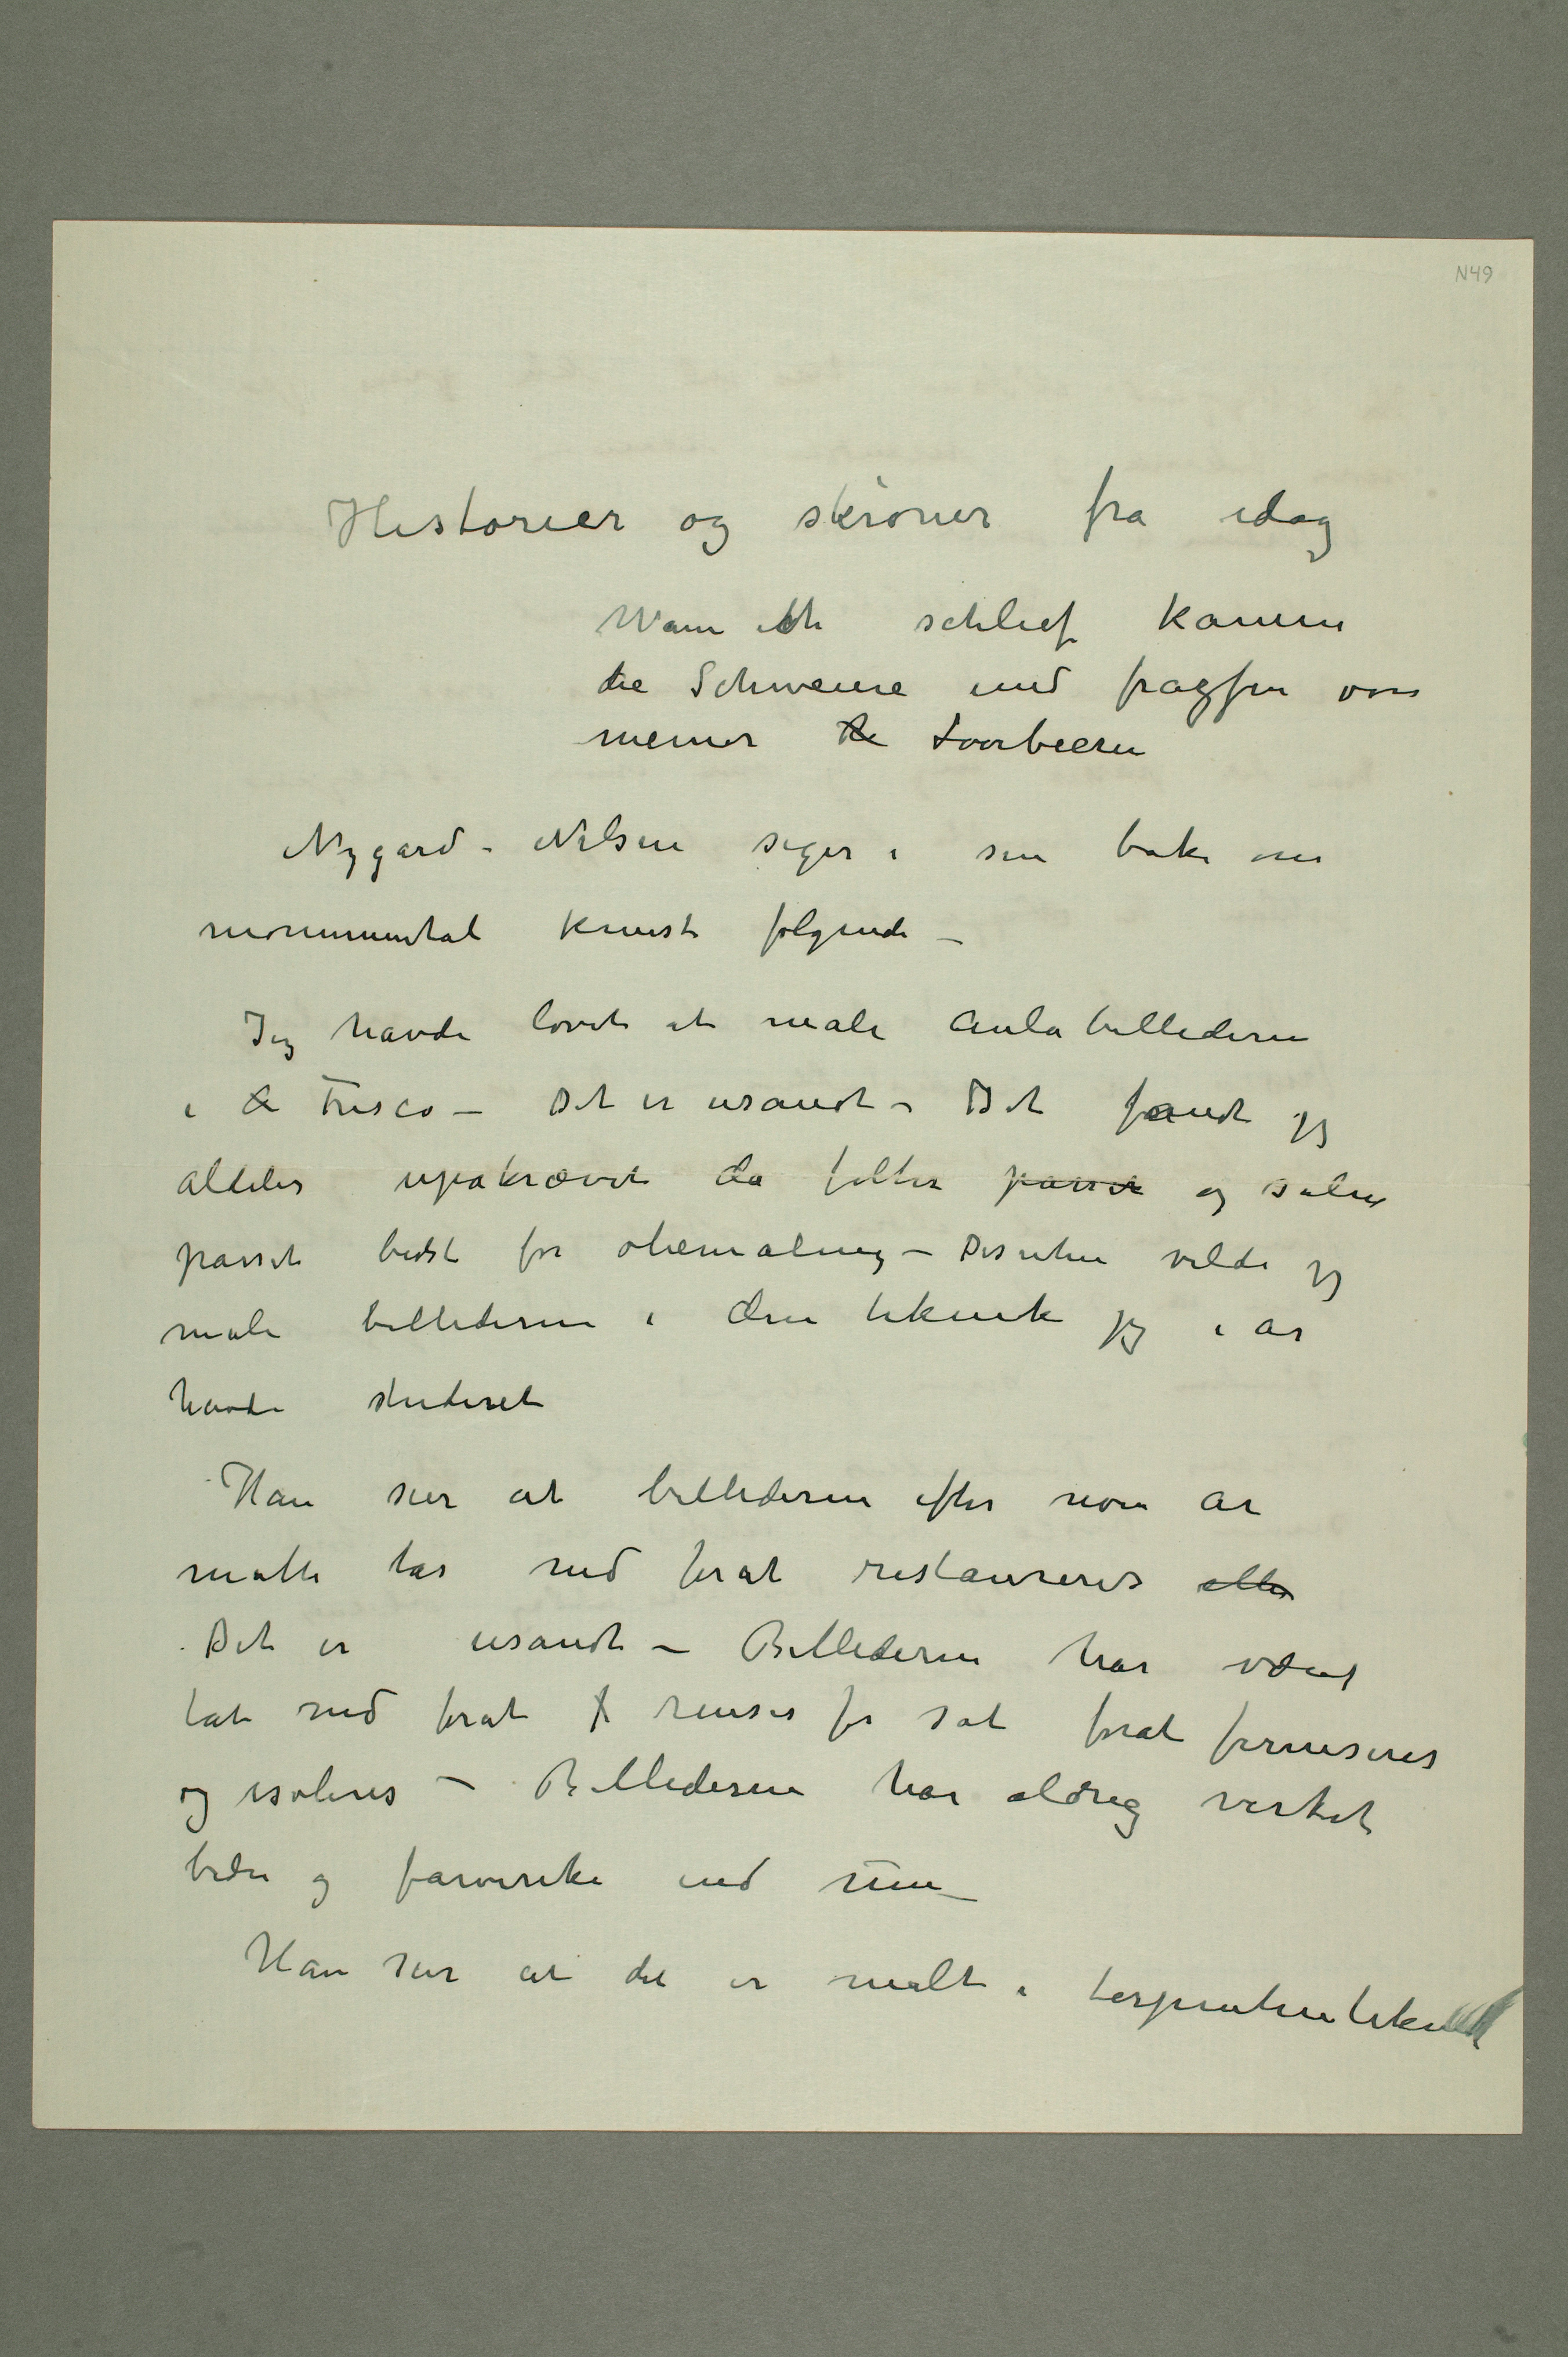 N49
Historier og skrøner fra idag
Wann ich schlief kamen
die Schweine und fragsen von
meiner Loorbeeren
Nygård-Nilsen siger i sin boke om
monumental kunst følgende –
Jeg havde lovet at male Aulabillederne
i Fresco – Det er usandt – Det fandt jeg
aldeles upåkrævet da felter passet og salen
passet bedst for oliemaling – Desuten vilde jeg
male billederne i den teknik jeg i år
havde studeret
Han sier at billederne efter noen år
måtte tas ned forat restaureres eller
Det er usandt – Billederne har været
tat ned forat renses for sot forat ferniseres
og isoleres – Billederne har aldrig virket
bedre og farverike end nu –
Han sier at det er malt i terpentinteknik